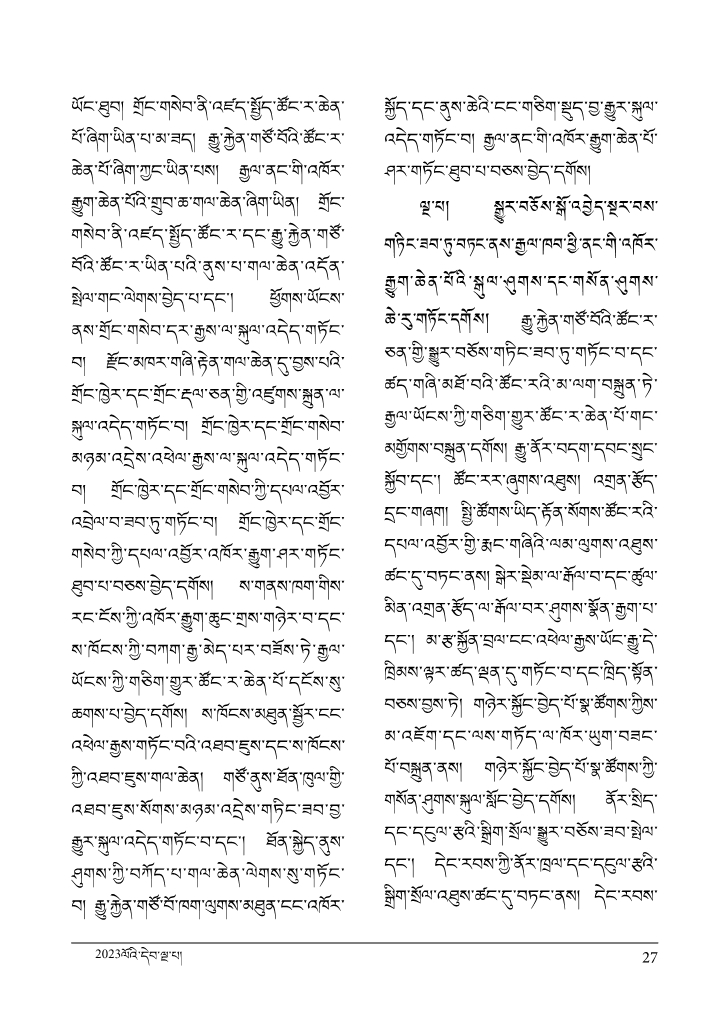 ཡོང་ཐུབ། གྲོང་གསེབ་ནི་འཛད་སྤྱོད་ཚོང་ར་ཆེན་
པོ་ཞིག་ཡིན་པ་མ་ཟད། རྒྱུ་རྐྱེན་གཙོ་བོའི་ཚོང་ར་
ཆེན་པོ་ཞིག་ཀྱང་ཡིན་པས། རྒྱལ་ནང་གི་འཁོར་
རྒྱུག་ཆེན་པོའི་གྲུབ་ཆ་གལ་ཆེན་ཞིག་ཡིན། གྲོང་
གསེབ་ནི་འཛད་སྤྱོད་ཚོང་ར་དང་རྒྱུ་རྐྱེན་གཙོ་
བོའི་ཚོང་ར་ཡིན་པའི་ནུས་པ་གལ་ཆེན་འདོན་
སྤེལ་གང་ལེགས་བྱེད་པ་དང་། ཕྱོགས་ཡོངས་
ནས་གྲོང་གསེབ་དར་རྒྱས་ལ་སྐུལ་འདེད་གཏོང་
བ། རྫོང་མཁར་གཞི་རྟེན་གལ་ཆེན་དུ་བྱས་པའི་
གྲོང་ཁྱེར་དང་གྲོང་རྡལ་ཅན་གྱི་འཛུགས་སྐྲུན་ལ་
སྐུལ་འདེད་གཏོང་བ། གྲོང་ཁྱེར་དང་གྲོང་གསེབ་
མཉམ་འདྲེས་འཕེལ་རྒྱས་ལ་སྐུལ་འདེད་གཏོང་
བ། གྲོང་ཁྱེར་དང་གྲོང་གསེབ་ཀྱི་དཔལ་འབྱོར་
འབྲེལ་བ་ཟབ་ཏུ་གཏོང་བ། གྲོང་ཁྱེར་དང་གྲོང་
གསེབ་ཀྱི་དཔལ་འབྱོར་འཁོར་རྒྱུག་ཤར་གཏོང་
ཐུབ་པ་བཅས་བྱེད་དགོས། ས་གནས་ཁག་གིས་
རང་ངོས་ཀྱི་འཁོར་རྒྱུག་ཆུང་གྲས་གཉེར་བ་དང་
ས་ཁོངས་ཀྱི་བཀག་རྒྱ་མེད་པར་བཟོས་ཏེ་རྒྱལ་
ཡོངས་ཀྱི་གཅིག་གྱུར་ཚོང་ར་ཆེན་པོ་དངོས་སུ་
ཆགས་པ་བྱེད་དགོས། ས་ཁོངས་མཐུན་སྦྱོར་ངང་
འཕེལ་རྒྱས་གཏོང་བའི་འཐབ་ཇུས་དང་ས་ཁོངས་
ཀྱི་འཐབ་ཇུས་གལ་ཆེན། གཙོ་ནུས་ཐོན་ཁུལ་གྱི་
འཐབ་ཇུས་སོགས་མཉམ་འདྲེས་གཏིང་ཟབ་བྱ་
རྒྱུར་སྐུལ་འདེད་གཏོང་བ་དང་། ཐོན་སྐྱེད་ནུས་
ཤུགས་ཀྱི་བཀོད་པ་གལ་ཆེན་ལེགས་སུ་གཏོང་
བ། རྒྱུ་རྐྱེན་གཙོ་བོ་ཁག་ལུགས་མཐུན་ངང་འཁོར་
སྐྱོད་དང་ནུས་ཆེའི་ངང་གཅིག་སྡུད་བྱ་རྒྱུར་སྐུལ་
འདེད་གཏོང་བ། རྒྱལ་ནང་གི་འཁོར་རྒྱུག་ཆེན་པོ་
ཤར་གཏོང་ཐུབ་པ་བཅས་བྱེད་དགོས།
ལྔ་པ། སྒྱུར་བཅོས་སྒོ་འབྱེད་སྔར་བས་
གཏིང་ཟབ་ཏུ་བཏང་ནས་རྒྱལ་ཁབ་ཕྱི་ནང་གི་འཁོར་
རྒྱུག་ཆེན་པོའི་སྐུལ་ཤུགས་དང་གསོན་ཤུགས་
ཆེ་རུ་གཏོང་དགོས། རྒྱུ་རྐྱེན་གཙོ་བོའི་ཚོང་ར་
ཅན་གྱི་སྒྱུར་བཅོས་གཏིང་ཟབ་ཏུ་གཏོང་བ་དང་
ཚད་གཞི་མཐོ་བའི་ཚོང་རའི་མ་ལག་བསྐྲུན་ཏེ་
རྒྱལ་ཡོངས་ཀྱི་གཅིག་གྱུར་ཚོང་ར་ཆེན་པོ་གང་
མགྱོགས་བསྐྲུན་དགོས། རྒྱུ་ནོར་བདག་དབང་སྲུང་
སྐྱོབ་དང་། ཚོང་རར་ཞུགས་འཐུས། འགྲན་རྩོད་
དྲང་གཞག། སྤྱི་ཚོགས་ཡིད་རྟོན་སོགས་ཚོང་རའི་
དཔལ་འབྱོར་གྱི་རྨང་གཞིའི་ལམ་ལུགས་འཐུས་
ཚང་དུ་བཏང་ནས། སྒེར་སྡེམ་ལ་རྒོལ་བ་དང་ཚུལ་
མིན་འགྲན་རྩོད་ལ་རྒོལ་བར་ཤུགས་སྣོན་རྒྱག་པ་
དང་། མ་རྩ་སྐྱོན་བྲལ་ངང་འཕེལ་རྒྱས་ཡོང་རྒྱུ་དེ་
ཁྲིམས་ལྟར་ཚད་ལྡན་དུ་གཏོང་བ་དང་ཁྲིད་སྟོན་
བཅས་བྱས་ཏེ། གཉེར་སྐྱོང་བྱེད་པོ་སྣ་ཚོགས་ཀྱིས་
མ་འཇོག་དང་ལས་གཏོད་ལ་ཁོར་ཡུག་བཟང་
པོ་བསྐྲུན་ནས། གཉེར་སྐྱོང་བྱེད་པོ་སྣ་ཚོགས་ཀྱི་
གསོན་ཤུགས་སྐུལ་སློང་བྱེད་དགོས། ནོར་སྲིད་
དང་དངུལ་རྩའི་སྒྲིག་སྲོལ་སྒྱུར་བཅོས་ཟབ་སྤེལ་
དང་། དེང་རབས་ཀྱི་ནོར་ཁྲལ་དང་དངུལ་རྩའི་
སྒྲིག་སྲོལ་འཐུས་ཚང་དུ་བཏང་ནས། དེང་རབས་
2023ལོའི་དེབ་ལྔ་པ། 27